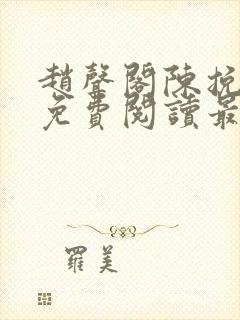 趙聲閣陳挽
免費閱讀最
羅美